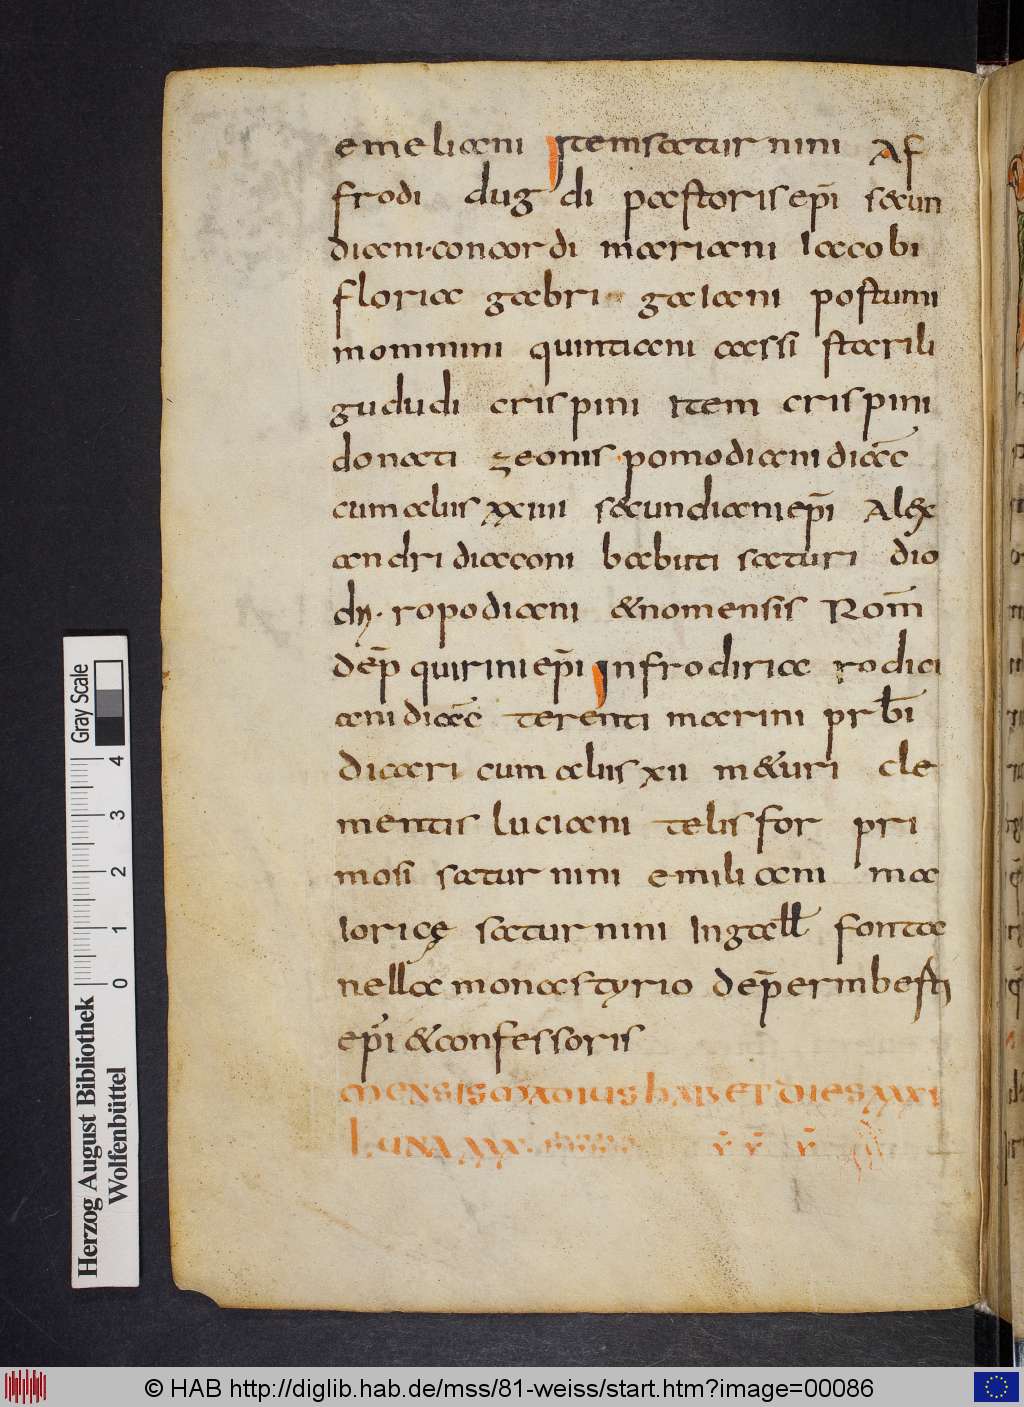 emeliani Item saturnini Af
frodi dug di pastoris epī secun
diani · concordi mariani iacobi
floria gabri gaiani postumi
mommini quintiani cassi starili
gududi crispini item crispini
donati zeonis pomodiani diac̄
cum aliis xxiiii secundiani epī Alex
andri diaconi babiti saturi dio
dy · ropodiani &nomensis Rom̄
dep̄ quirini epī In frodiria rodici
ani diac̄ terenti marini prb̄i
dicari cum aliis xii m&uri cle
mentis luciani telisfor pri
mosi saturnini emiliani ma
ioricę saturnini In gall̄ fonta
nella monastyrio dep̄ erinbesti
epī &confessoris
MENSIS MADIUS HABET DIES XXXI
LUNA XXX
Herzog August Bibliothek
Wolfenbüttel
0 1 2 3 4
Gray Scale
© HAB http://diglib.hab.de/mss/81-weiss/start.htm?image=00086